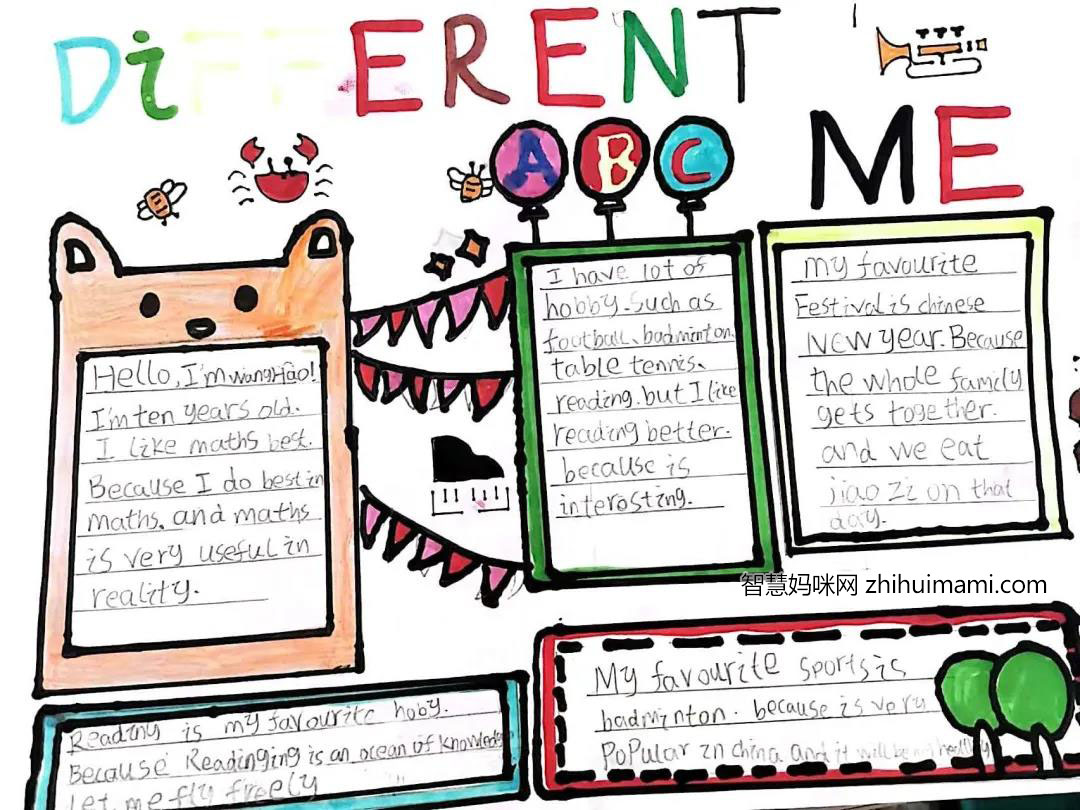 DiFFERENT
ME
A B C
Hello, I'm wangHao!
I'm ten years old.
I like maths best.
Because I do best in
maths. and maths
is very useful in
reality.
I have lot of
hobby. Such as
football、badminton、
table tennis.
reading. but I like
reading better.
because is
interosting.
my favourite
Festival is chinese
New year. Because
the whole family
gets together.
and we eat
jiao zi on that
day.
智慧妈咪网 zhihuimami.com
Reading is my favourite hoby.
Because Readinging is an ocean of knowledge
Let me fly freely
My favourite sports is
badminton. because is very
PoPular in china and it will be